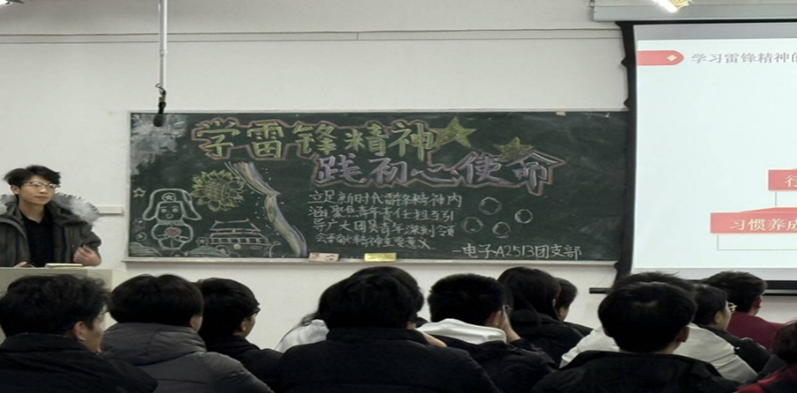 学雷锋精神
践初心使命
立足新时代雷锋精神内
涵聚焦青年责任担当引
导广大团员青年深刻领
会雷锋精神主要意义
—电子A2513团支部
学习雷锋精神的
行
习惯养成